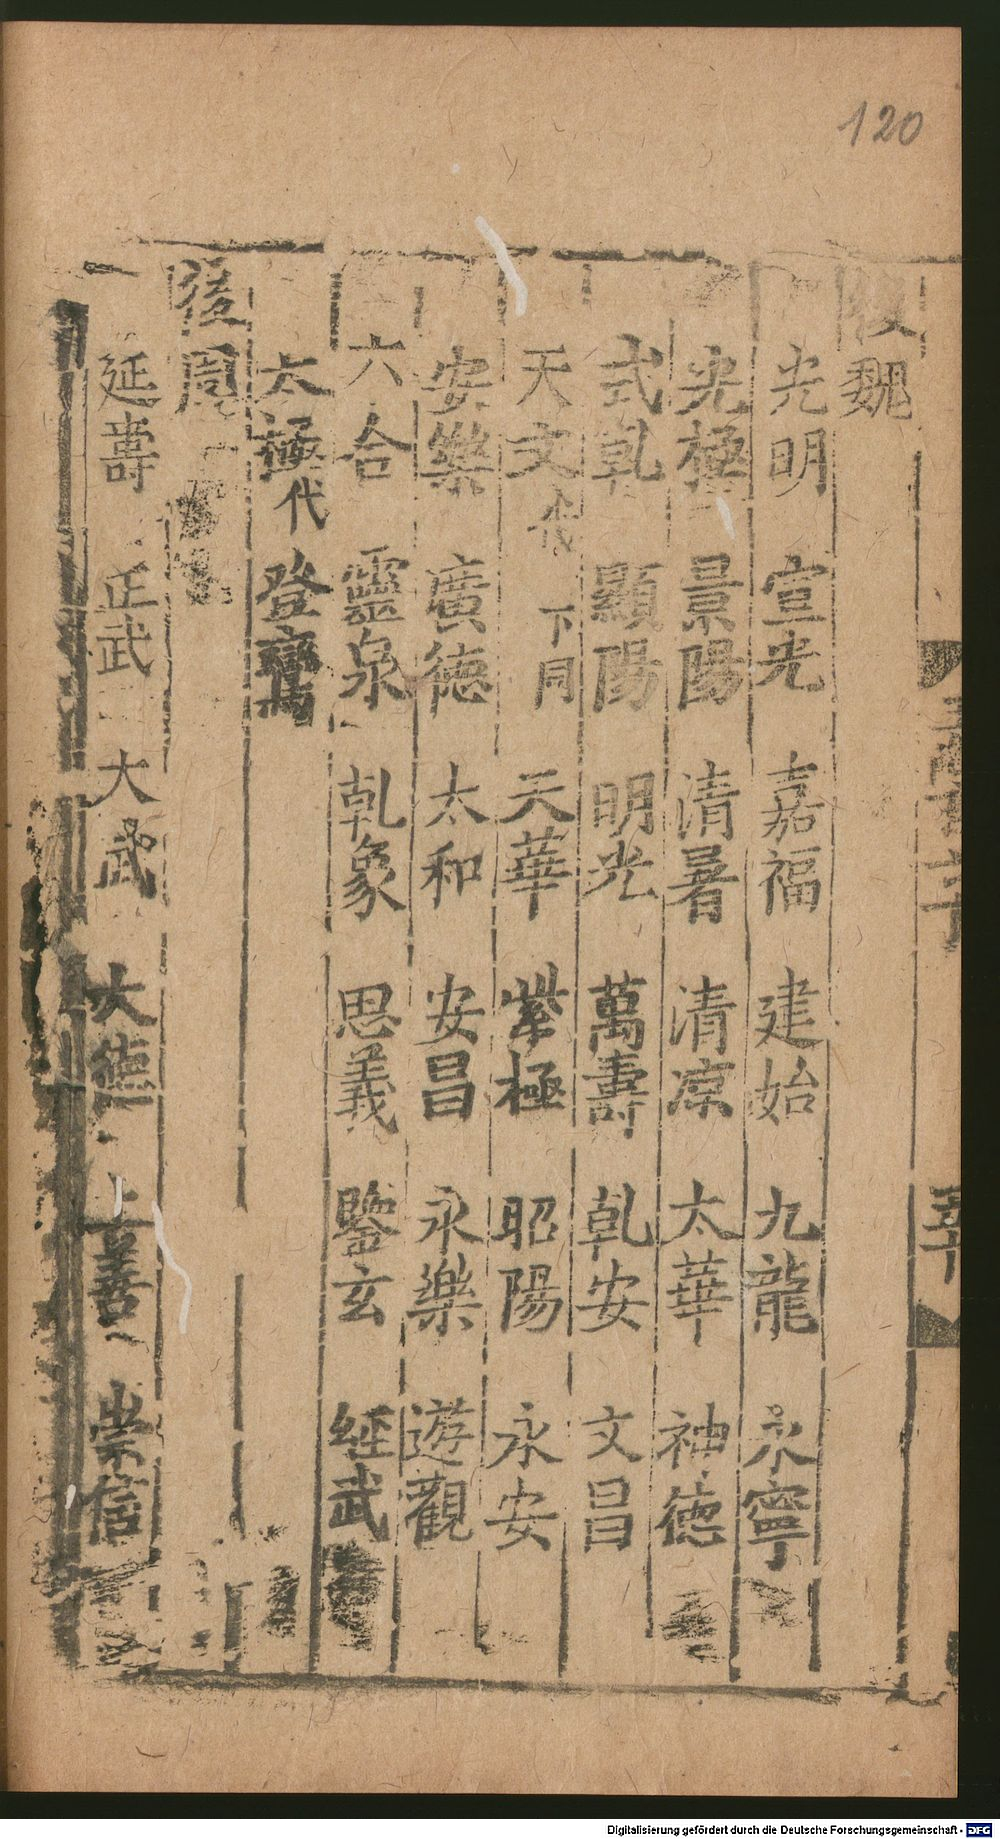 120
後魏
光明 宣光 嘉福 建始 九龍 永寧
光極 景陽 清暑 清凉 太華 神德
式乹 顯陽 明光 萬壽 乹安 文昌
天文 代 下同 天華 紫極 昭陽 永安
安樂 廣德 太和 安昌 永樂 遊觀
六合 靈泉 乹象 思義 鑒玄 經武
太極 代 登鸞
後周
延壽 正武 大武 大德 上善 崇信
五十
Digitalisierung gefördert durch die Deutsche Forschungsgemeinschaft - DFG